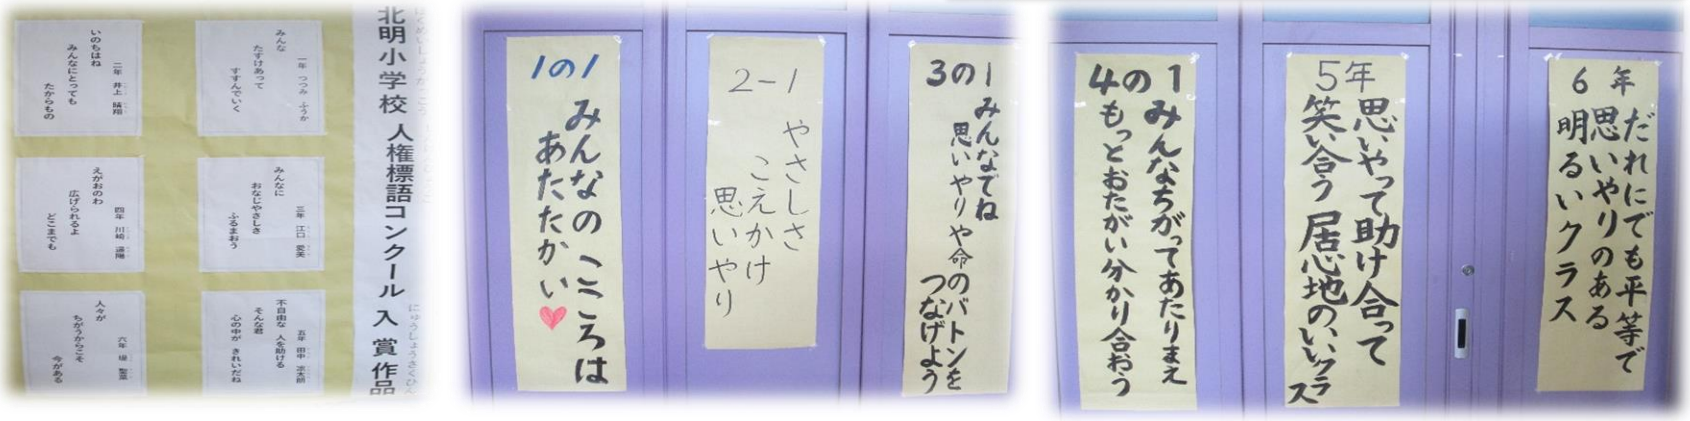 北明小学校 人権標語コンクール 入賞作品
にゅうしょうさくひん
一年 つつみ ふうか
みんな
たすけあって
すすんでいく
二年 井上 晴翔
いのちはね
みんなにとっても
たからもの
三年 江口 愛美
みんなに
おなじやさしさ
ふるまおう
四年 川崎
えがおのわ
広げられるよ
どこまでも
五年 田中
不自由な 人を助ける
そんな君
心の中が きれいだね
六年 堤
人々が
ちがうからこそ
今がある
1の1
みんなの こころは
あたたかい♥
2-1
やさしさ
こえかけ
思いやり
3の1
みんなでね
思いやりや命のバトンを
つなげよう
4の1
みんなちがってあたりまえ
もっとおたがい分かり合おう
5年
思いやって助け合って
笑い合う 居心地のいいクラス
6年
だれにでも平等で
思いやりのある
明るいクラス